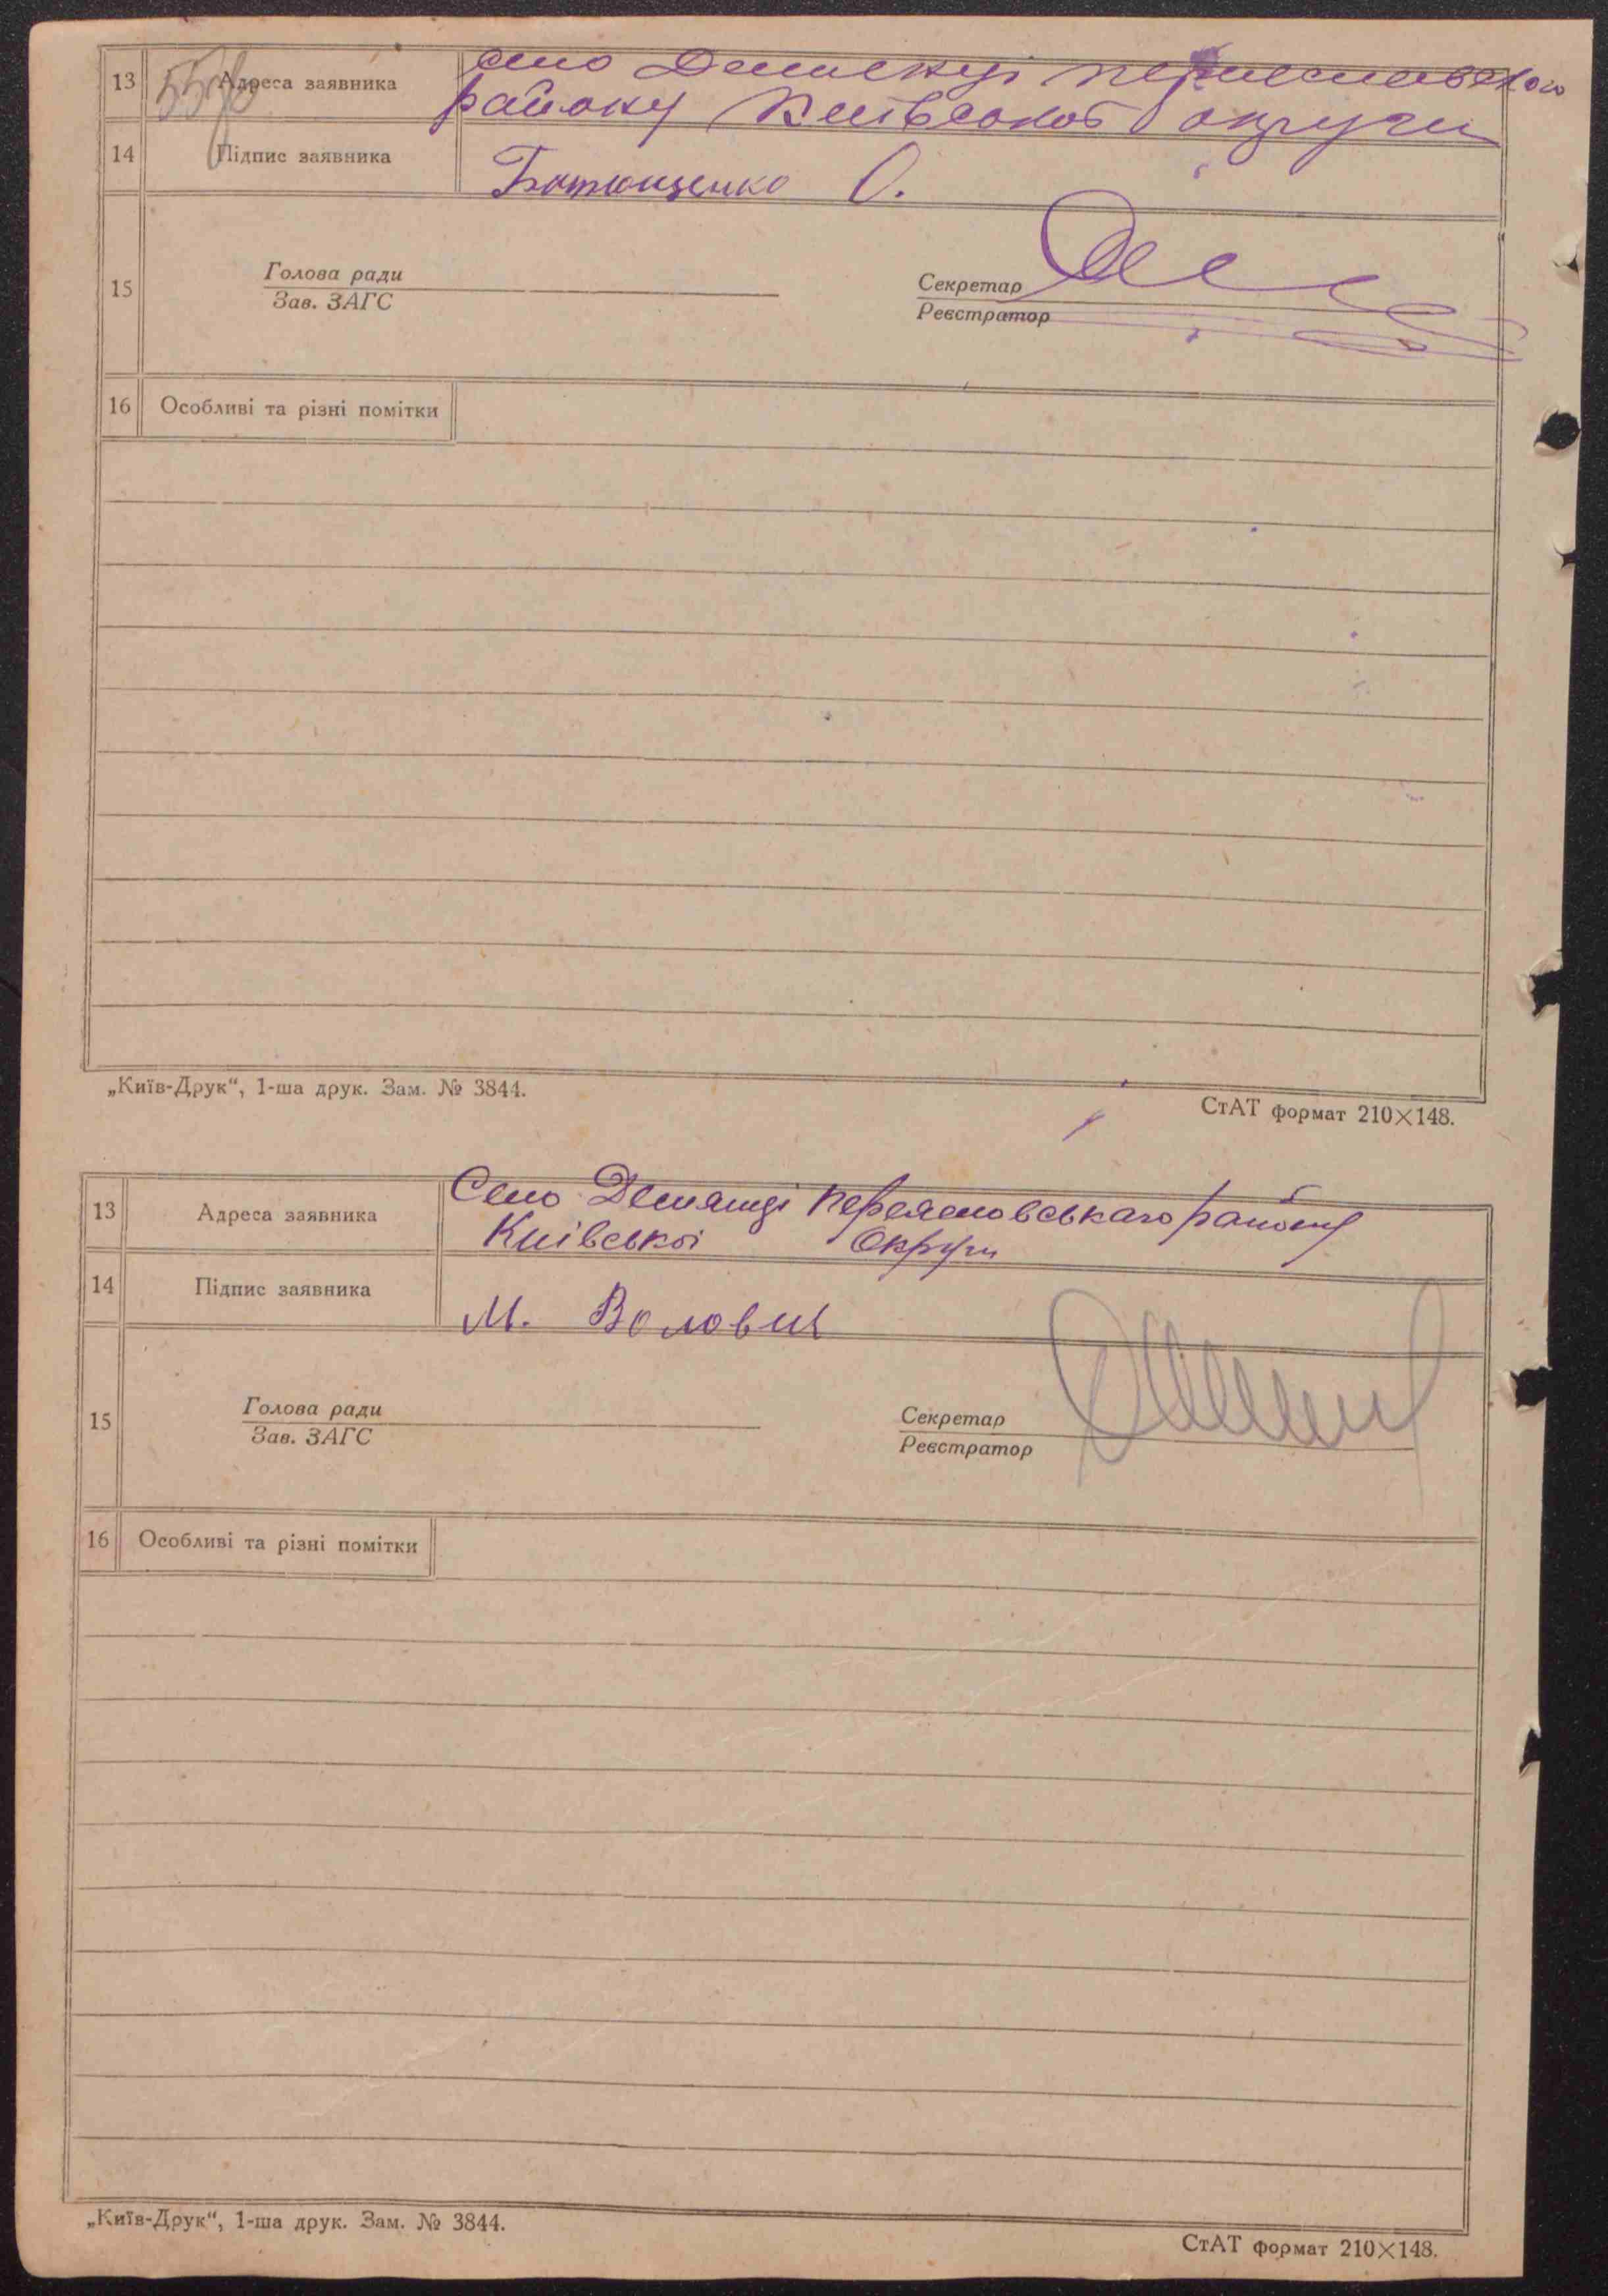 13 Адреса заявника село Демянці переяславского
району Київської округи
14 Підпис заявника
О.
Голова ради
15 Зав. ЗАГС
Секретар
Реєстратор
16 Особливі та різні помітки
„Київ-Друк“, 1-ша друк. Зам. № 3844.
СтАТ формат 210×148.
13 Адреса заявника Село Демянці Переяславського району
Київської Округи
14 Підпис заявника
М. Воловик
Голова ради
15 Зав. ЗАГС
Секретар
Реєстратор
16 Особливі та різні помітки
„Київ-Друк“, 1-ша друк. Зам. № 3844.
СтАТ формат 210×148.